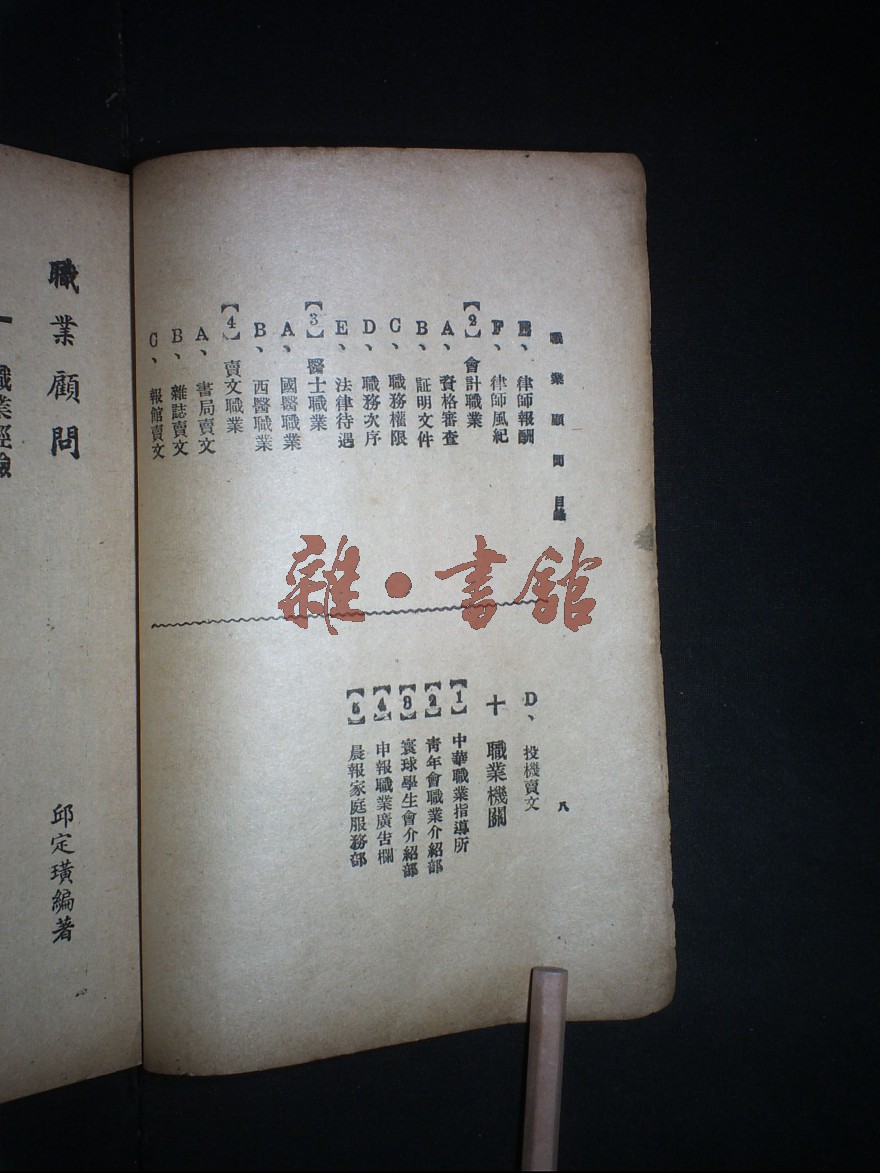 職業顧問 目錄
E、律師報酬
F、律師風紀
【2】會計職業
A、資格審查
B、証明文件
C、職務權限
D、職務次序
E、法律待遇
【3】醫士職業
A、國醫職業
B、西醫職業
【4】賣文職業
A、書局賣文
B、雜誌賣文
C、報館賣文
D、投機賣文
十 職業機關
【1】中華職業指導所
【2】青年會職業介紹部
【3】寰球學生會介紹部
【4】申報職業廣告欄
【5】晨報家庭服務部
八
雜·書館
職業顧問
邱定璜編著
一 職業經驗